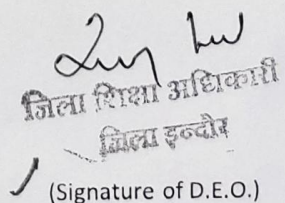 जिला शिक्षा अधिकारी
जिला इन्दौर
(Signature of D.E.O.)